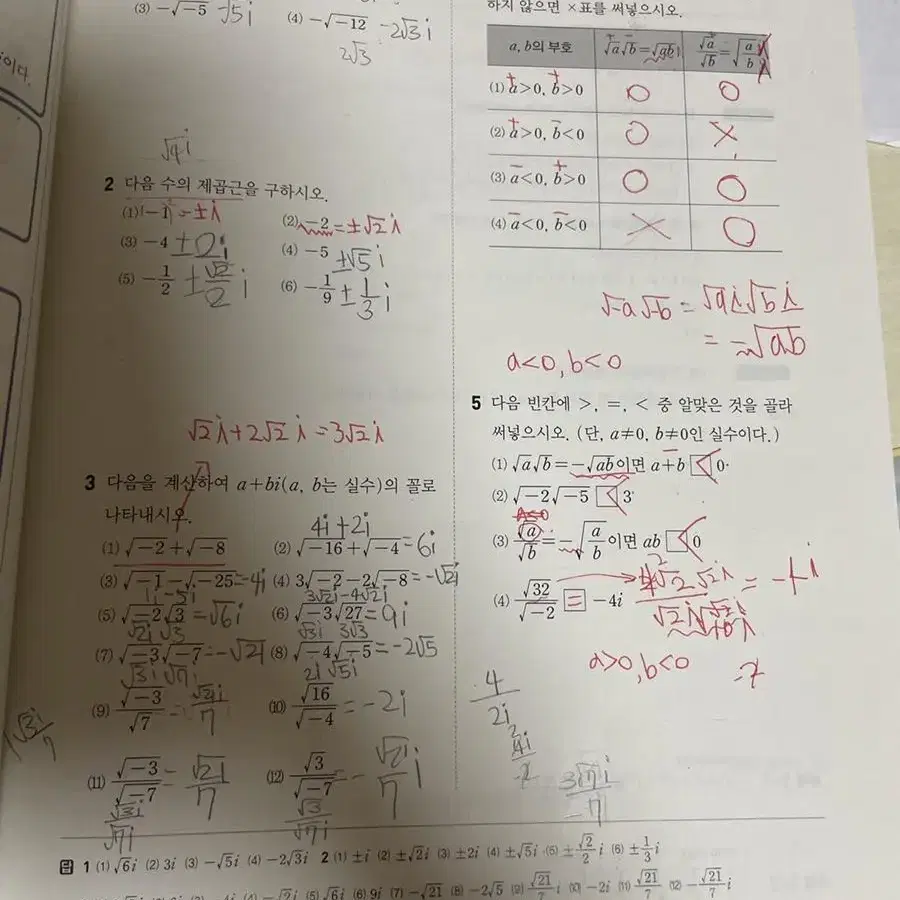 (3) −√−5 -√5i (4) −√−12 -2√3i
2√3
√4i
2 다음 수의 제곱근을 구하시오.
(1) −1 = ±i (2) −2 = ±√2i
(3) −4 ±2i (4) −5 ±√5i
(5) −1/2 ±√2/2 i (6) −1/9 ±1/3 i
√2i+2√2i=3√2i
3 다음을 계산하여 a+bi(a, b는 실수)의 꼴로
나타내시오.
4i+2i
(1) √−2+√−8 (2) √−16+√−4 =6i
(3) √−1−√−25 =-4i (4) 3√−2−2√−8 =-√2i
1i-5i 3√2i-4√2i
(5) √−2√3 =√6i (6) √−3√27 =9i
√2i √3 √3i 3√3
(7) √−3√−7 =-√21 (8) √−4√−5 =-2√5
√3i √7i 2i √5i
(9) √−3/√7 = √21i/7 (10) √16/√−4 =-2i
√3i/7
(11) √−3/√−7 = √21/7 (12) √3/√−7 = -√21/7 i
√3i/√7i √3/√7i
하지 않으면 ×표를 써넣으시오.
a, b의 부호 √a√b=√ab √a/√b=√a/b
(1) a>0, b>0 O O
(2) a>0, b<0 O X
(3) a<0, b>0 O O
(4) a<0, b<0 X O
√-a√-b = √ai√bi
= -√ab
a<0, b<0
5 다음 빈칸에 >, =, < 중 알맞은 것을 골라
써넣으시오. (단, a≠0, b≠0인 실수이다.)
(1) √a√b=−√ab이면 a+b < 0
(2) √−2√−5 < 3
(3) √a/√b=−√a/b이면 ab < 0
(4) √32/√−2 = −4i
= -4i
a>0, b<0
4/2i
3√7i/-7
답 1 (1) √6i (2) 3i (3) −√5i (4) −2√3i 2 (1) ±i (2) ±√2i (3) ±2i (4) ±√5i (5) ±√2/2 i (6) ±1/3 i
−4i (4) −√2i (5) √6i (6) 9i (7) −√21 (8) −2√5 (9) √21/7 i (10) −2i (11) √21/7 (12) −√21/7 i